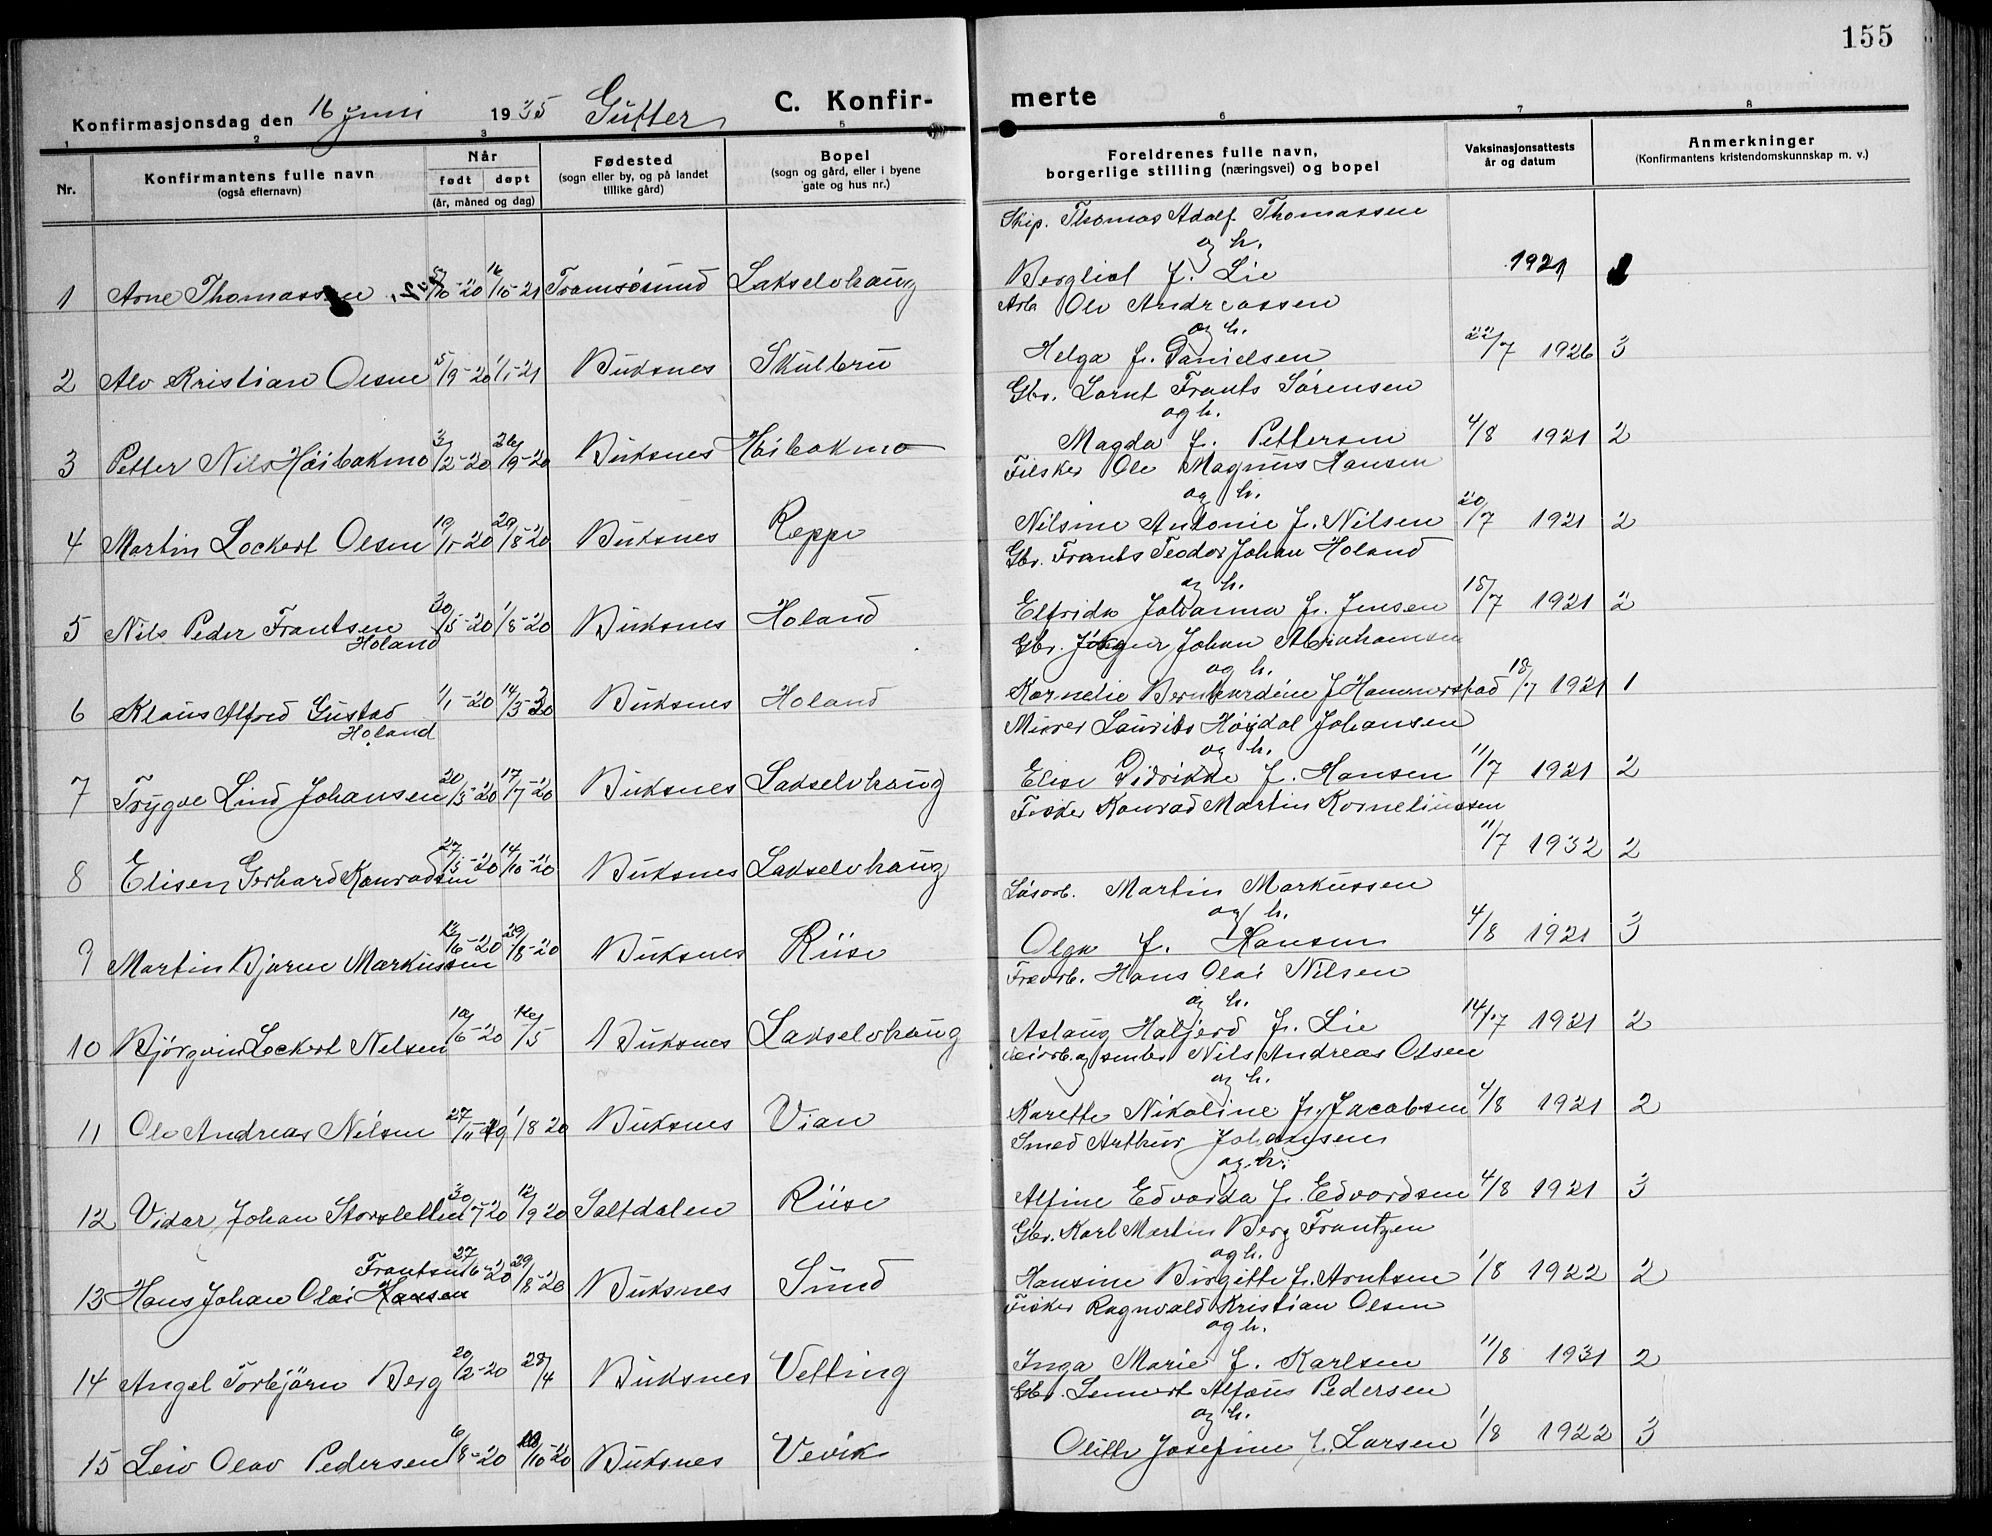 155
Konfirmasjonsdag den 16 Juni 1935 Gutter C. Konfir-merte
1 2 3 5 6 7 8
Nr.
Konfirmantens fulle navn
(også efternavn)
Når
født døpt
(år, måned og dag)
Fødested
(sogn eller by, og på landet
tillike gård)
Bopel
(sogn og gård, eller i byene
gate og hus nr.)
Foreldrenes fulle navn,
borgerlige stilling (næringsvei) og bopel
Vaksinasjonsattests
år og datum
Anmerkninger
(Konfirmantens kristendomskunnskap m. v.)
Skip. Thomas Adolf Thomassen
og h.
1 Arne Thomassen /10-20 16/10-21 Tromsøsund Lakselvhaug Bergliot f. Lie 1921
Arb. Ole Andreassen
og h.
2 Alv Kristian Olsen 5/9-20 1/1-21 Buksnes Skulbru Helga f. Danielsen 22/7 1926 3
Gbr. Lornt Frants Sørensen
og h.
3 Petter Nils Höibakmo 3/2-20 26/9-20 Buksnes Höibakmo Magda f. Pettersen 4/8 1921 2
Fisker Ole Magnus Hansen
og h.
4 Martin Lockert Olsen 19/1-20 29/8-20 Buksnes Reppe Nilsine Antonie f. Nilsen 20/7 1921 2
Gbr. Frants Teodor Johan Holand
og h.
5 Nils Peder Frantsen 30/5-20 1/8-20 Buksnes Holand Elfrida Johanna f. Jensen 15/7 1921 2
Holand
Gbr. Johan Abrahamsen
og h.
6 Klaus Alfred Gustad 1/1-20 14/3-20 Buksnes Holand Kornelie Bernhardine f. Hammerstad 18/7 1921 1
Holand
Murer Laurits Høydal Johansen
og h.
7 Trygve Lind Johansen 20/3-20 17/7-20 Buksnes Lakselvhaug Elise Didrikke f. Hansen 11/7 1921 2
Fisker Konrad Martin Korneliussen
8 Elisen Gerhard Konradsen 27/5-20 14/10-20 Buksnes Lakselvhaug 11/7 1932 2
Løsarb. Martin Markussen
og h.
9 Martin Bjarne Markussen /6-20 29/8-20 Buksnes Riise Olga f. Hansen 4/8 1921 3
Hans Olai Nilsen
og h.
10 Bjørgvin Lockert Nilsen 10/6-20 16/5 Buksnes Lakselvhaug Aslaug Haljerd f. Lie 14/7 1921 2
Veiarb. og Nils Andreas Olsen
og h.
11 Ole Andreas Nilsen 27/11-19 1/8 20 Buksnes Vian Karette Nikoline f. Jacobsen 4/8 1921 2
Smed Arthur Johansen
og h.
12 Vidar Johan Storsletten 30/7-20 12/9 20 Saltdalen Riise Alfine Edvarda f. Edvardsen 4/8 1921 3
Gbr. Karl Martin Berg Frantzen
og h.
Frantsen
13 Hans Johan Olai Hansen 27/6-20 29/8-20 Buksnes Sund Hansine Birgitte f. Arntsen 1/8 1922 2
Fisker Ragnvald Kristian Olsen
og h.
14 Angel Torbjörn Berg 20/2-20 28/4 Buksnes Vetting Inga Marie f. Karlsen 11/8 1931 2
Gbr. Lennert Alfæus Pedersen
og h.
15 Leiv Olav Pedersen 6/8-20 /10-20 Buksnes Vevik Olitte Josefine f. Larsen 1/8 1922 3